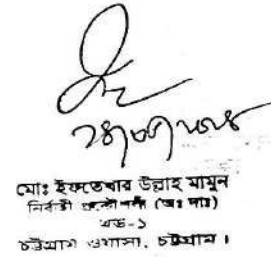 মোঃ ইফতেখার উল্লাহ মামুন
নির্বাহী প্রকৌশলী (অঃ দাঃ)
মড-১
চট্টগ্রাম ওয়াসা, চট্টগ্রাম।